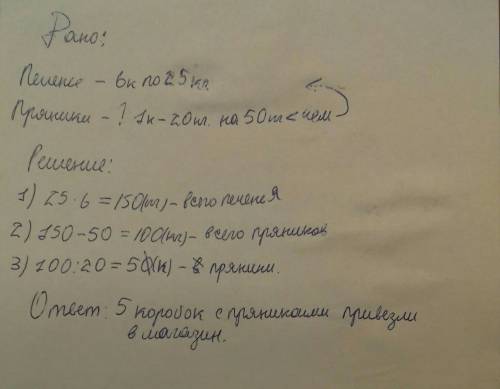 Рано:
Печенье - 6к по 25кг
Пряники - ? 1к - 20кг. на 50кг < чем
Решение:
1) 25·6 = 150(кг) - всего печенья
2) 150 - 50 = 100(кг) - всего пряников
3) 100:20 = 5(к) - пряники.
Ответ: 5 коробок с пряниками привезли
в магазин.